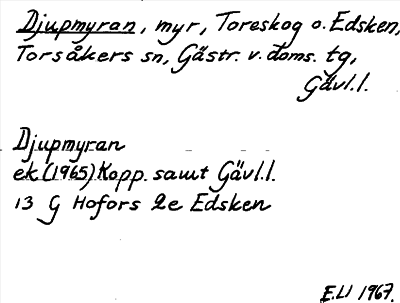 Djupmyran, myr, Toreskog o. Edsken,
Torsåkers sn, Gästr. v. doms. tg,
Gävl.l.
Djupmyran
ek (1965) Kopp. samt Gävl.l.
13 G Hofors 2e Edsken
E.LI 1967.